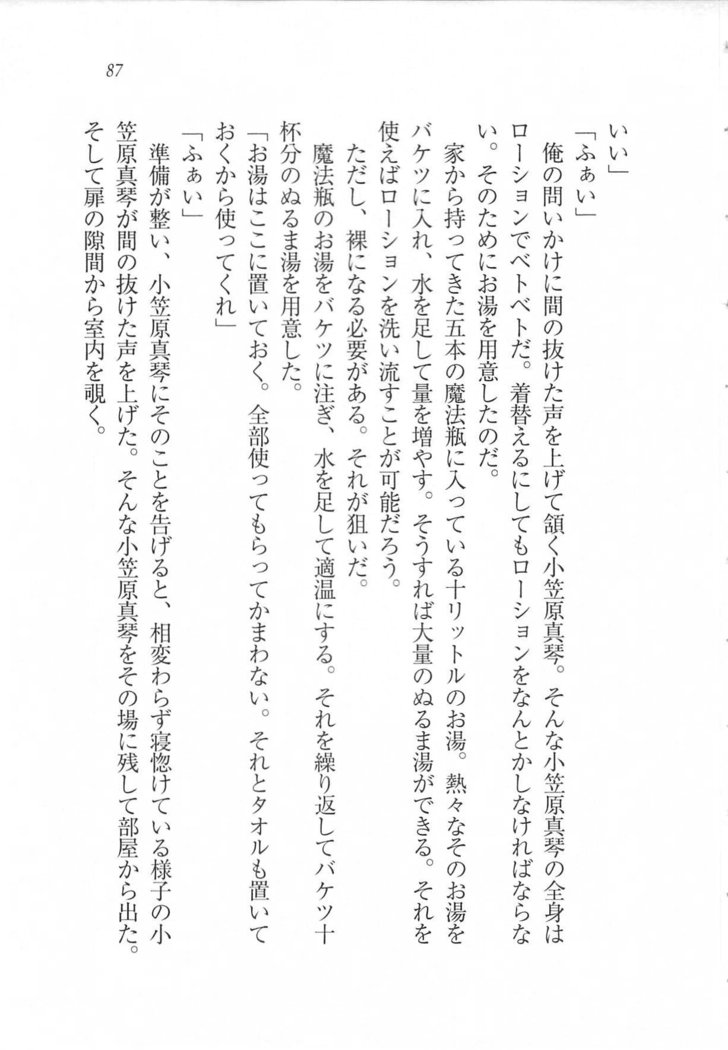 87
いい」
「ふぁい」
　俺の問いかけに間の抜けた声を上げて頷く小笠原真琴。そんな小笠原真琴の全身は
ローションでベトベトだ。着替えるにしてもローションをなんとかしなければならな
い。そのためにお湯を用意したのだ。
　家から持ってきた五本の魔法瓶に入っている十リットルのお湯。熱々なそのお湯を
バケツに入れ、水を足して量を増やす。そうすれば大量のぬるま湯ができる。それを
使えばローションを洗い流すことが可能だろう。
　ただし、裸になる必要がある。それが狙いだ。
　魔法瓶のお湯をバケツに注ぎ、水を足して適温にする。それを繰り返してバケツ十
杯分のぬるま湯を用意した。
「お湯はここに置いておく。全部使ってもらってかまわない。それとタオルも置いて
おくから使ってくれ」
「ふぁい」
　準備が整い、小笠原真琴にそのことを告げると、相変わらず寝惚けている様子の小
笠原真琴が間の抜けた声を上げた。そんな小笠原真琴をその場に残して部屋から出た。
そして扉の隙間から室内を覗く。